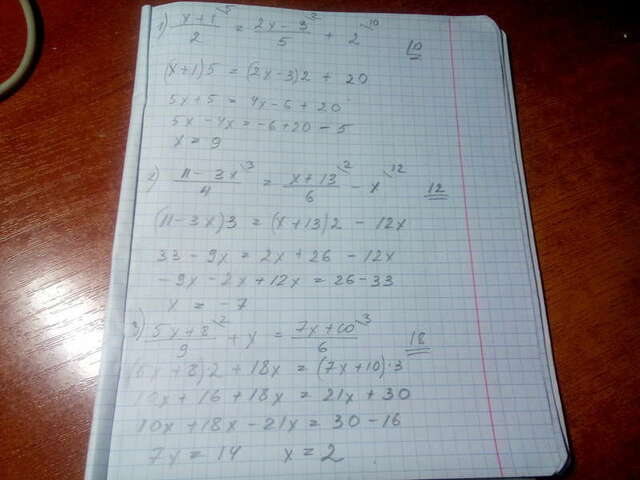 1) (x+1)/2 \5 = (2x-3)/5 \2 + 2 \10 10
(x+1)5 = (2x-3)2 + 20
5x+5 = 4x-6+20
5x-4x = -6+20-5
x = 9
2) (11-3x)/4 \3 = (x+13)/6 \2 - x \12 12
(11-3x)3 = (x+13)2 - 12x
33-9x = 2x+26-12x
-9x-2x+12x = 26-33
x = -7
3) (5x+8)/9 \2 + x = (7x+10)/6 \3 18
(5x+8)2 + 18x = (7x+10)·3
10x+16+18x = 21x+30
10x+18x-21x = 30-16
7x = 14 x = 2